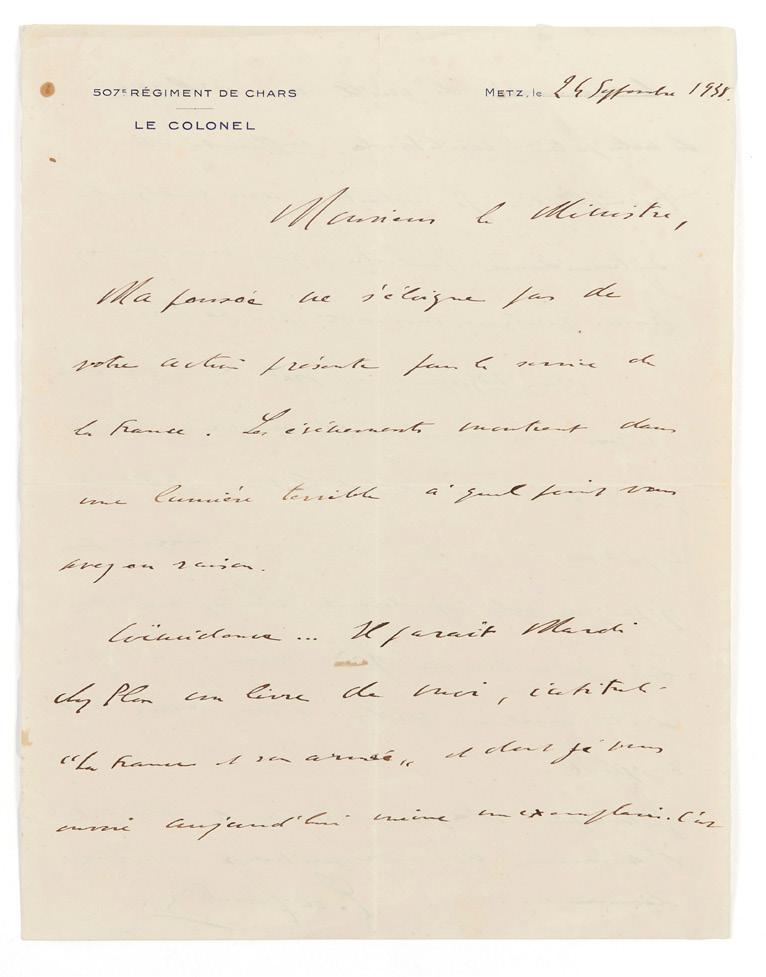 507E RÉGIMENT DE CHARS
LE COLONEL
METZ, le 24 Septembre 1938.
Monsieur le Ministre,
Ma pensée ne s'éloigne pas de
votre action présente pour le service de
la France. Les événements montrent dans
une lumière terrible à quel point vous
avez eu raison.
Coïncidence... Il paraît Mardi
chez Plon un livre de moi, intitulé
"La France et son armée" et dont je vous
envoie aujourd'hui même un exemplaire. C'est